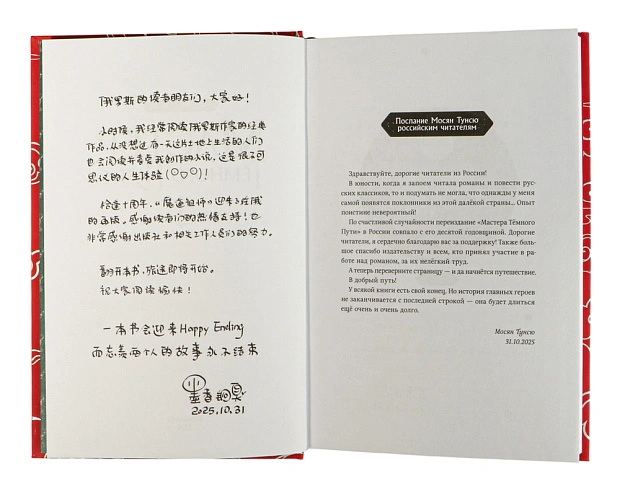 俄罗斯的读者朋友们，大家好！
小时候，我经常阅读俄罗斯作家的经典
作品，从没想过有一天这片土地上生活的人们
也会阅读并喜爱我创作的小说，这是很不可
思议的人生体验(♡▽♡)！
恰逢十周年，《魔道祖师》迎来了在俄
的再版。感谢读者们的热情支持！也
非常感谢出版社和相关工作人员们的努力。
翻开本书，旅途即将开始。
祝大家阅读愉快！
一本书会迎来Happy Ending
而忘羡两个人的故事永不结束
墨香铜臭
2025.10.31
Послание Мосян Тунсю
российским читателям
Здравствуйте, дорогие читатели из России!
В юности, когда я запоем читала романы и повести рус-
ских классиков, то и подумать не могла, что однажды у меня
самой появятся поклонники из этой далёкой страны... Опыт
поистине невероятный!
По счастливой случайности переиздание «Мастера Тёмного
Пути» в России совпало с его десятой годовщиной. Дорогие
читатели, я сердечно благодарю вас за поддержку! Также боль-
шое спасибо издательству и всем, кто принял участие в рабо-
те над романом, за их нелёгкий труд.
А теперь переверните страницу — и да начнётся путешествие.
В добрый путь!
У всякой книги есть свой конец. Но история главных героев
не заканчивается с последней строкой — она будет длиться
ещё очень и очень долго.
Мосян Тунсю
31.10.2025